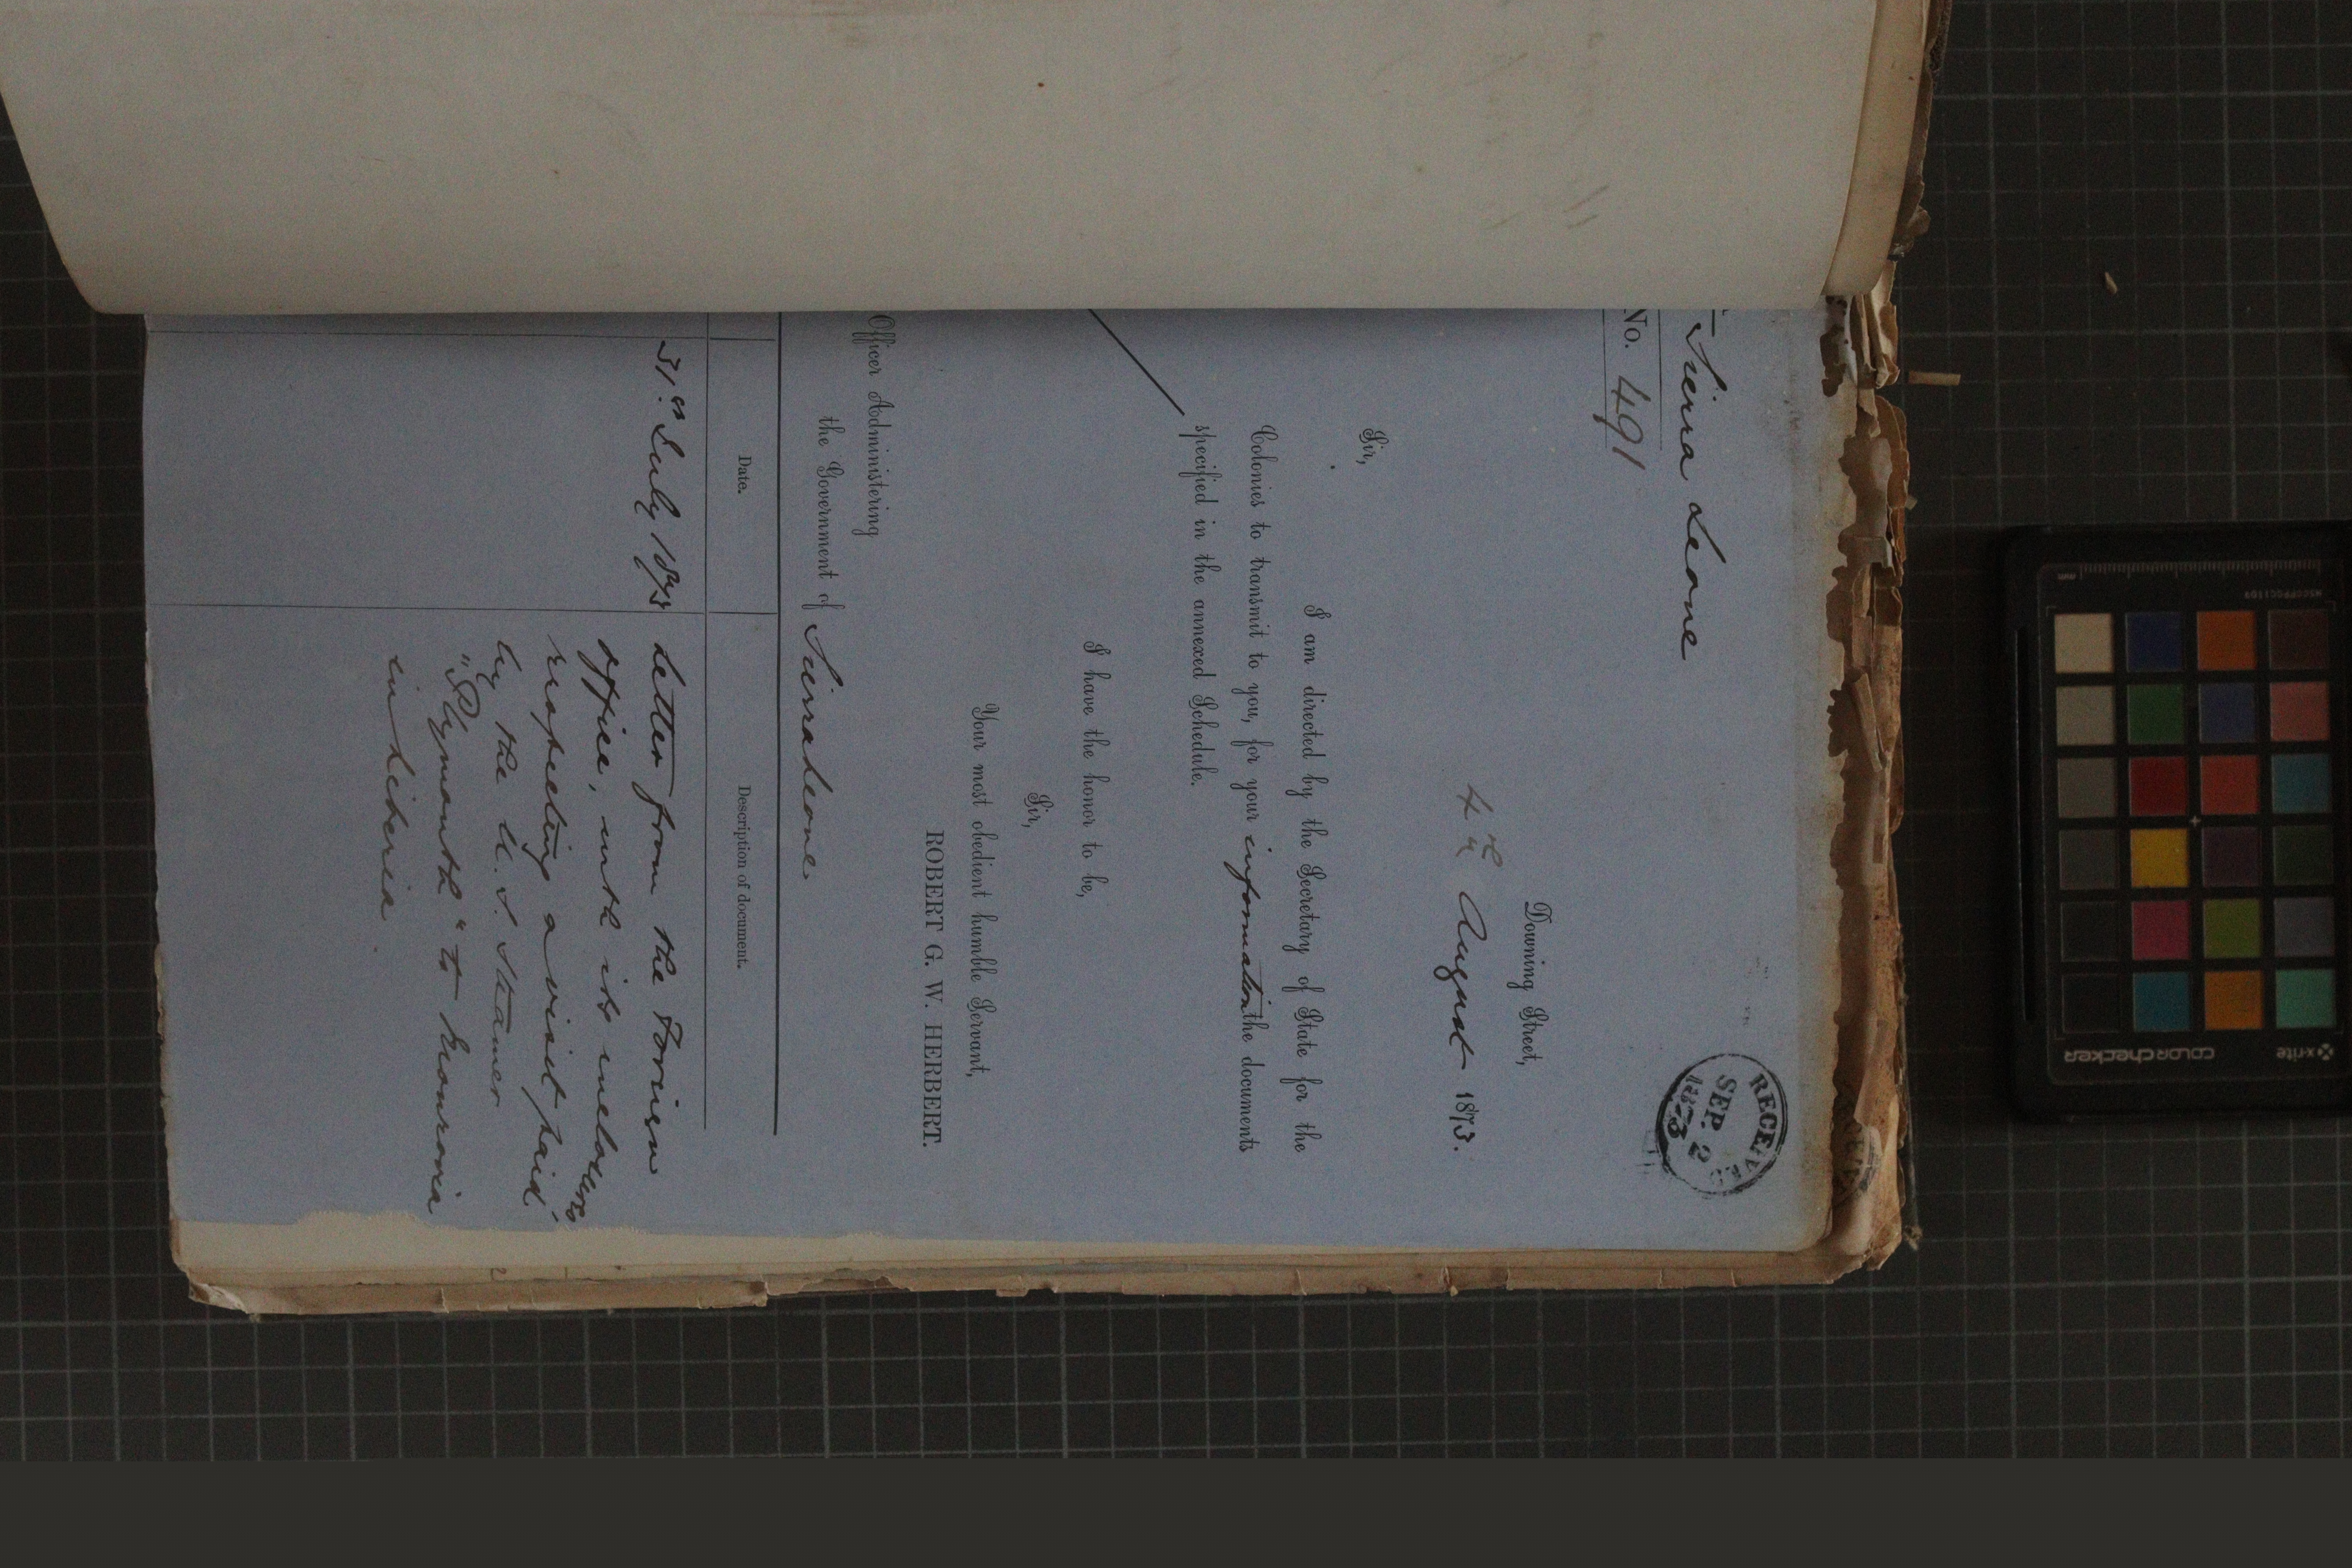 Sierra Leone
RECEIVED
SEP. 2
1873
No. 491
Downing Street,
4th August 1873.
Sir,
I am directed by the Secretary of State for the
Colonies to transmit to you, for your information the documents
specified in the annexed Schedule.
I have the honor to be,
Sir,
Your most obedient humble Servant,
ROBERT G. W. HERBERT.
Officer Administering
the Government of Sierra Leone
Date.
Description of document.
31st July 1873
Letter from the Foreign
Office, with its inclosures
respecting a visit paid
by the U. S. Steamer
"Plymouth" to Monrovia
in Liberia
x-rite
colorchecker
MSCCPPCC1109
mm